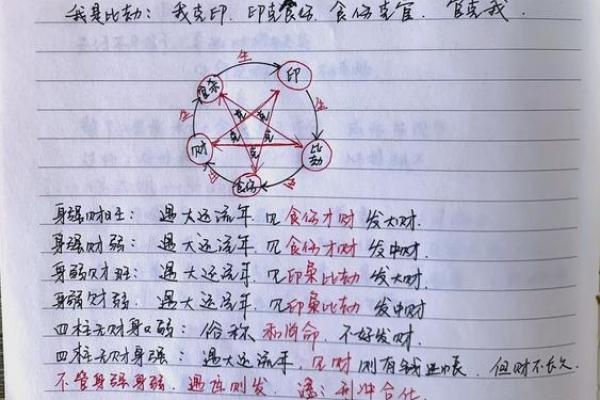 我是比劫：我克印．印克食伤．食伤克官．官克我．
生
官杀
印
生
生
克
克
克
克
克
财
比劫
食伤
身强财旺：遇大运流年，见食伤才财 发大财．
身强财弱：遇大运流年，见食伤才财 发中财．
身弱财旺：遇大运流年，见印枭比劫 发大财．
身弱财弱．遇大运流年，见印枭比劫 发中财
四柱无财身弱：俗称 命，不好发财．
四柱无财身强：遇大运流年，见财则有钱进帐．但财不长久．
不管身强身弱．遇 则发．